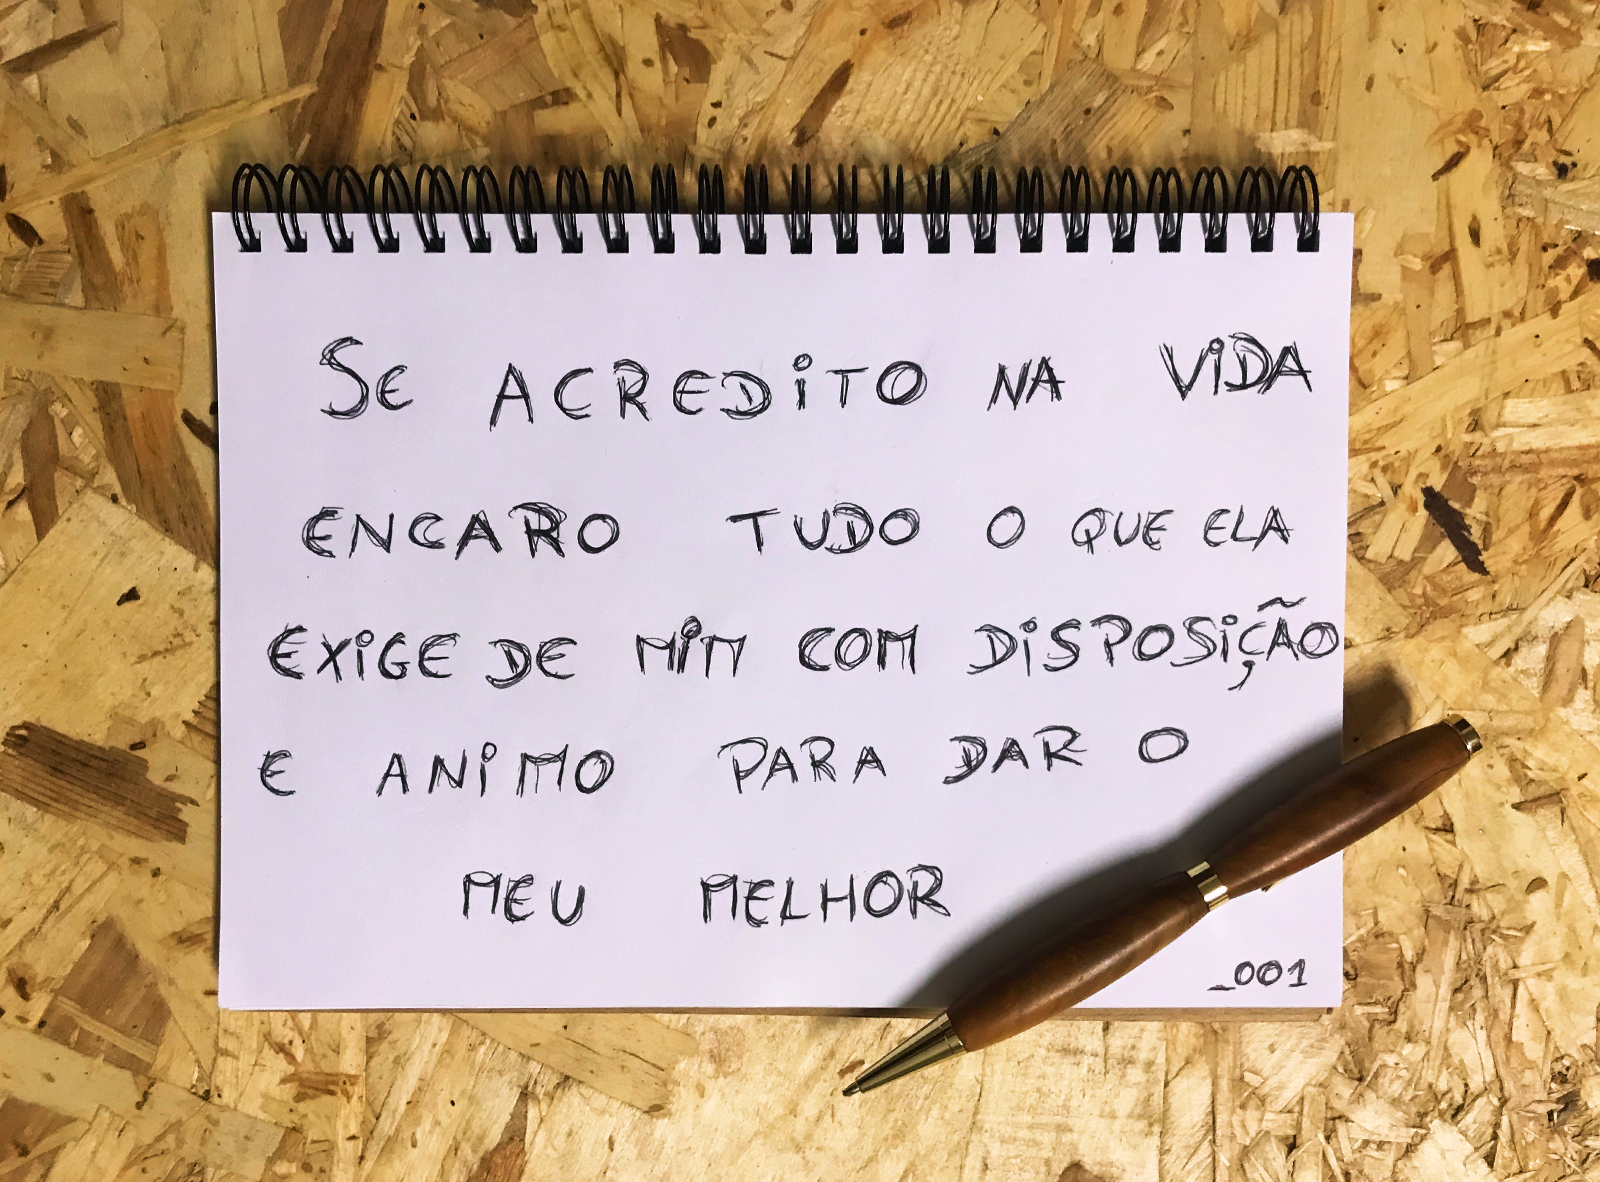 SE ACREDITO NA VIDA
ENCARO TUDO O QUE ELA
EXIGE DE MIM COM DISPOSIÇÃO
E ANIMO PARA DAR O
MEU MELHOR
_001